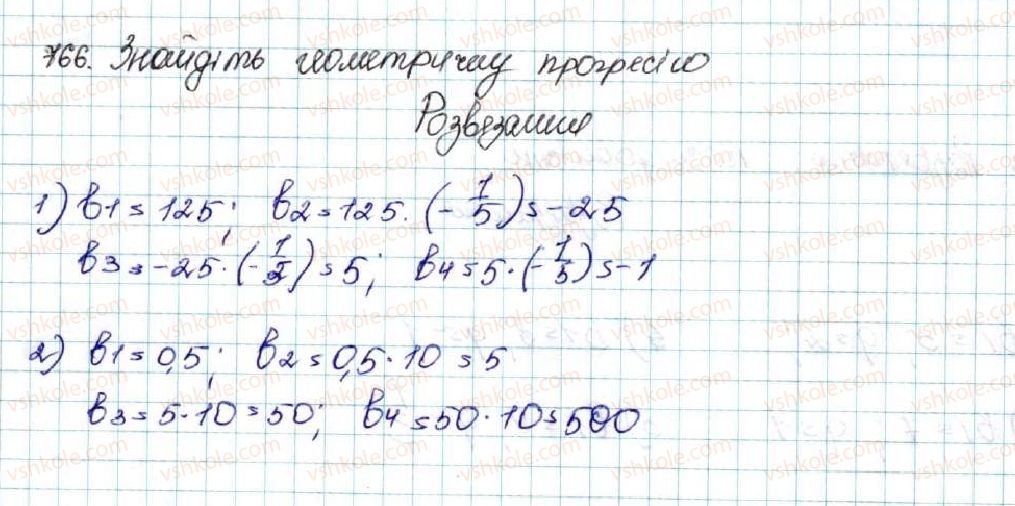 766. Знайдіть геометричну прогресію
Розвязання
1) b1 = 125; b2 = 125 · (-1/5) = -25
b3 = -25 · (-1/5) = 5; b4 = 5 · (-1/5) = -1
2) b1 = 0,5; b2 = 0,5 · 10 = 5
b3 = 5 · 10 = 50; b4 = 50 · 10 = 500
vshkole.com